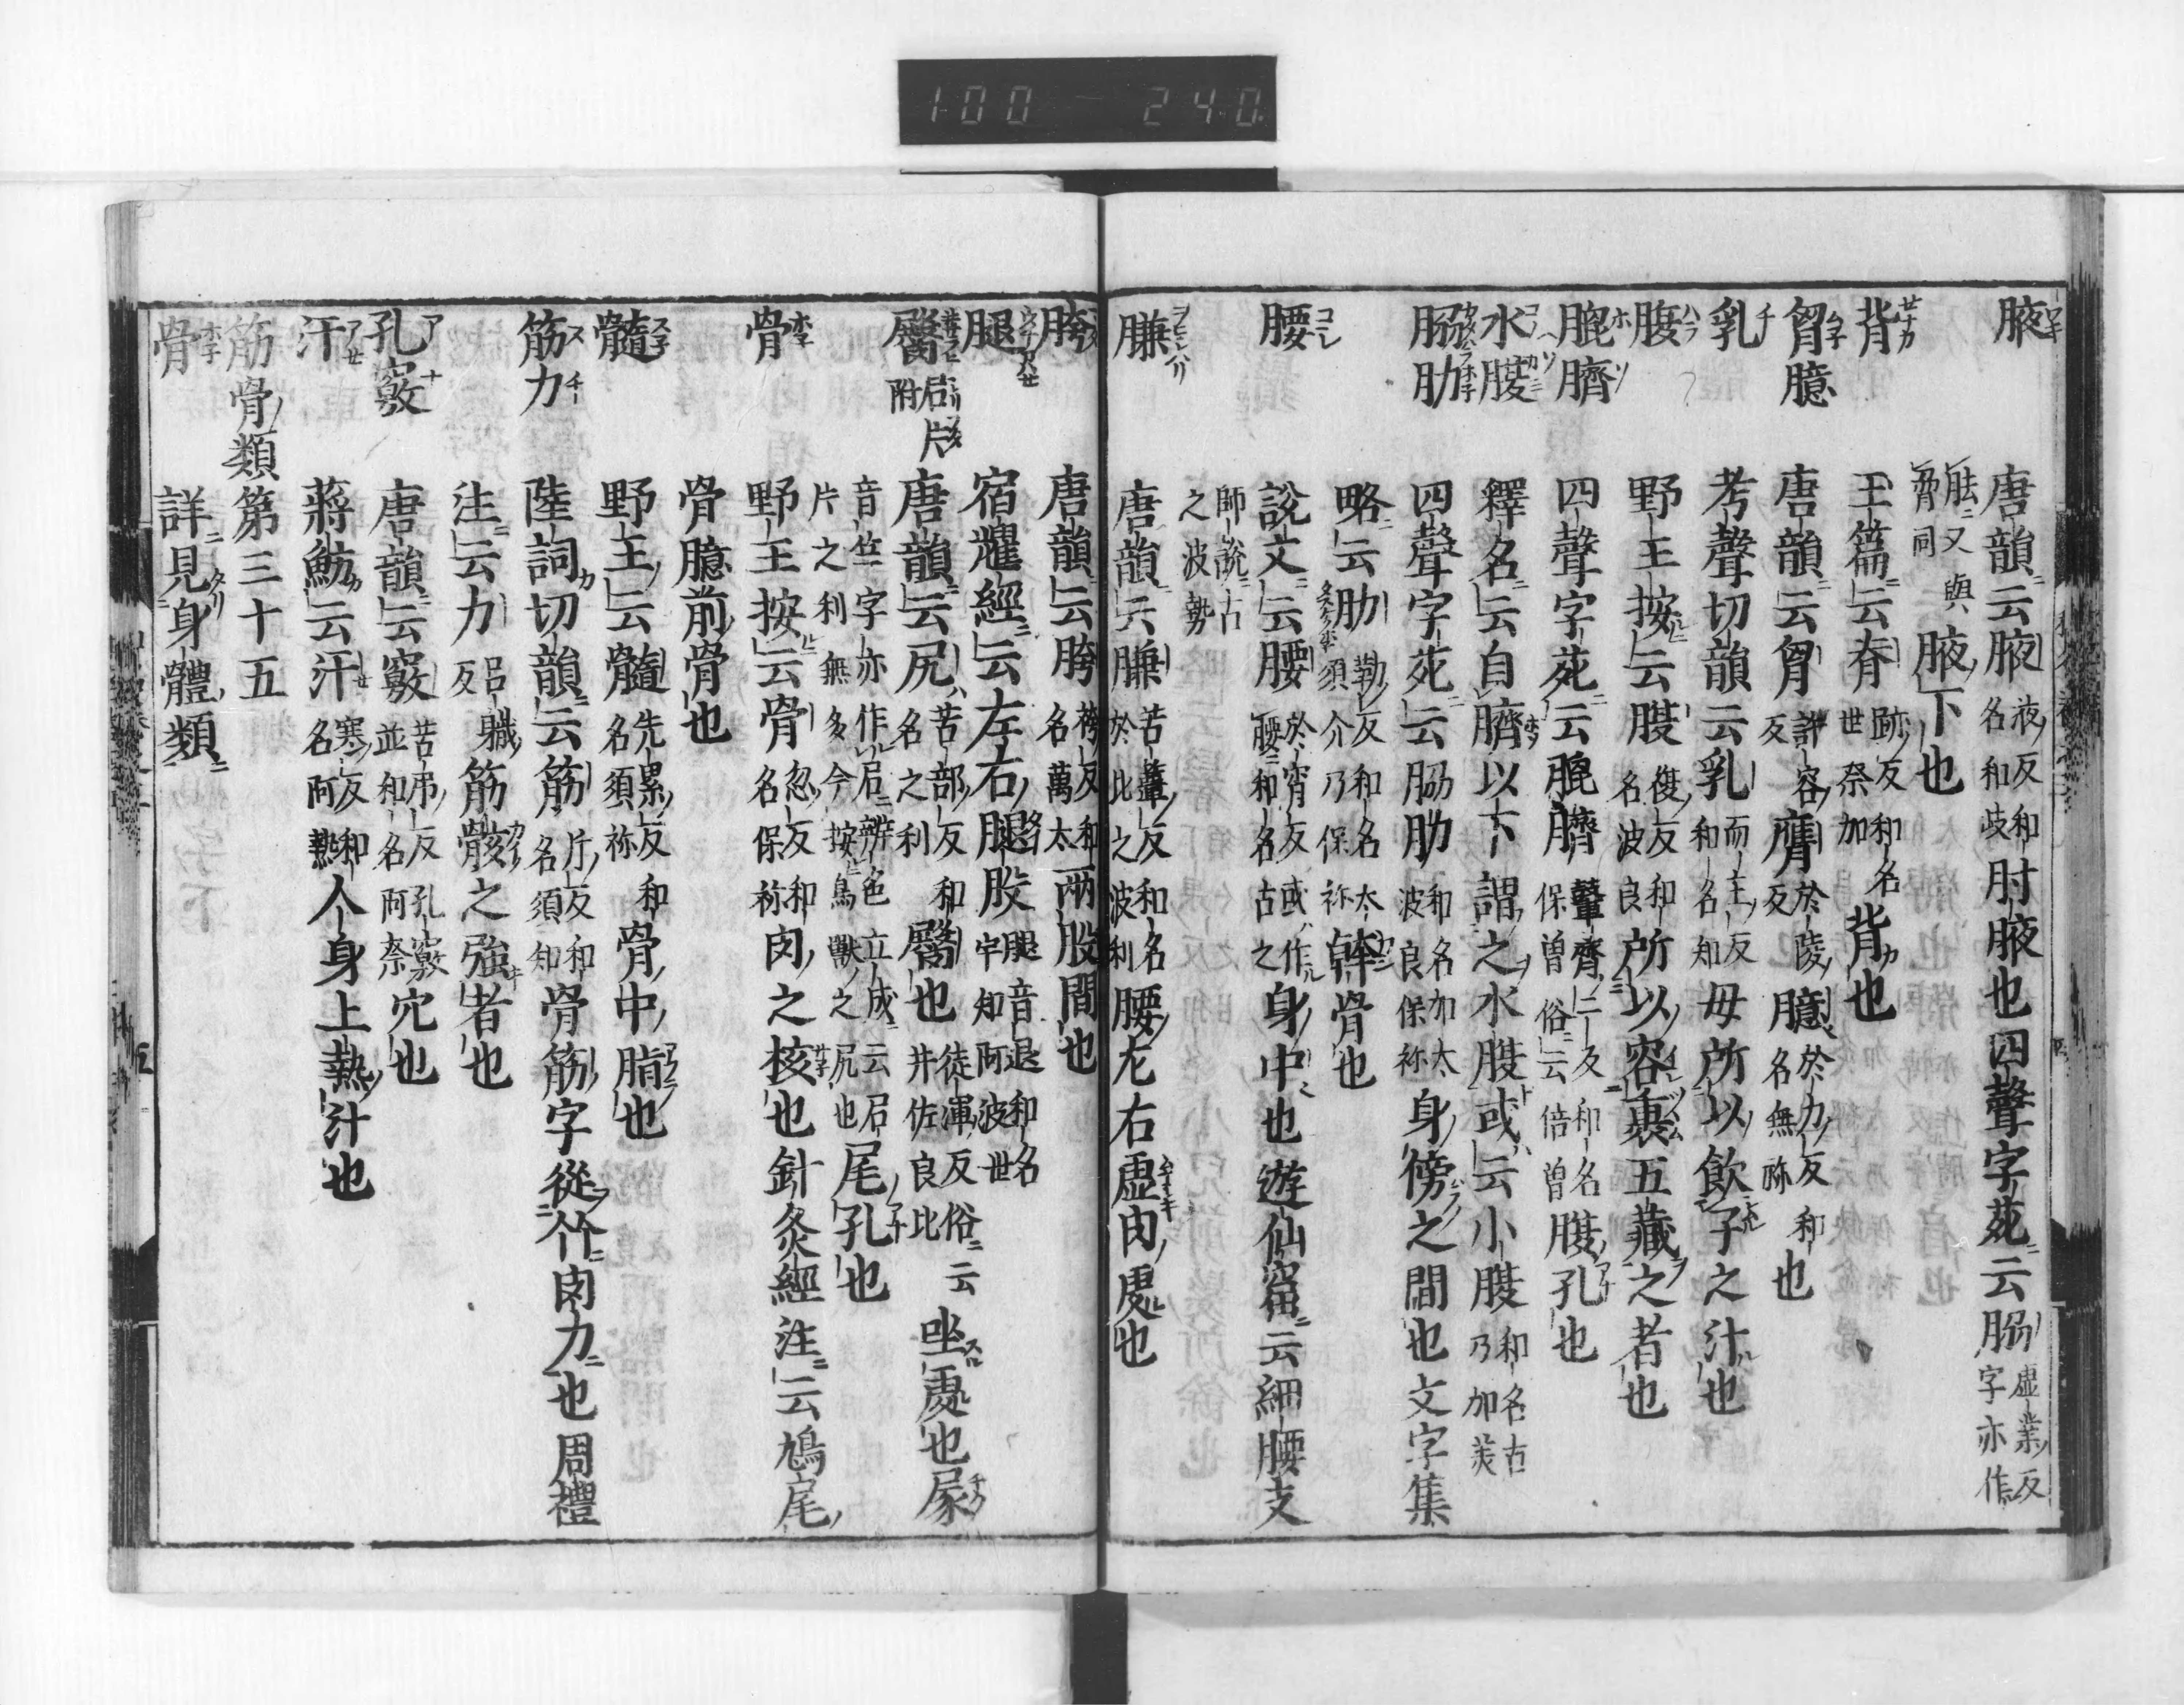 100 240
腋 唐韻云腋液反和名和岐肘腋也四聲字苑云脇虚業反字亦作
胠又與脅同腋下也
背 玉篇云脊跡反和名世祭加背也
胷臆 唐韻云胷許容反膺於陵反臆於力反和名無祢也
乳 考聲切韻云乳而主反和名知母所以飲子之汁也
腹 野王按云腹復反和名波良所以容裹五藏之者也
膍臍 四聲字苑云膍臍鼙齊二反和名保曽俗云倍曽腹孔也
水腹 釋名云自臍以下謂之水腹或云小腹和名古乃加美
脇肋 四聲字苑云脇肋和名加太波良保祢身傍之間也文字集
略云肋勒反和名太須介乃保祢幹骨也
腰 說文云腰於宵反或作𦝫和名古之身中也遊仙窟云細腰支
師說古之波勢
膁 唐韻云膁苦簟反和名於比之波利腰左右虚肉處也
胯 唐韻云胯袴反和名萬太兩股間也
腿 宿耀經云左右腿股腿音退和名宇知阿波世
臀 𡱂片附 唐韻云尻苦部反和名之利臀也徒渾反俗云井佐良比坐處也𡱂
音竺字亦作𡱂辨色立成云𡱂片之利無多今按鳥獸之尻也尾孔也
骨 野王按云骨忽反和名保祢肉之核也針灸經注云鳩尾
骨臆前骨也
髓 野王云髓先累反和名須祢骨中脂也
筋力 陸詞切韻云筋斤反和名須知骨筋字從竹肉力也周禮
注云力呂職反筋骸之強者也
孔竅 唐韻云竅苦弔反孔竅並和名阿奈穴也
汗 蔣魴云汗寒反和名阿勢人身上熱汁也
筋骨類第三十五
骨 詳見身體類